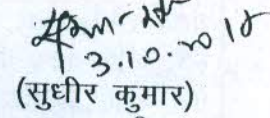 3.10.2018
(सुधीर कुमार)